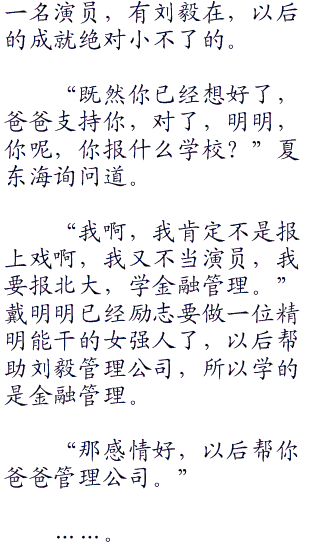 一名演员，有刘毅在，以后
的成就绝对小不了的。
“既然你已经想好了，
爸爸支持你，对了，明明，
你呢，你报什么学校？”夏
东海询问道。
“我啊，我肯定不是报
上戏啊，我又不当演员，我
要报北大，学金融管理。”
戴明明已经励志要做一位精
明能干的女强人了，以后帮
助刘毅管理公司，所以学的
是金融管理。
“那感情好，以后帮你
爸爸管理公司。”
……。